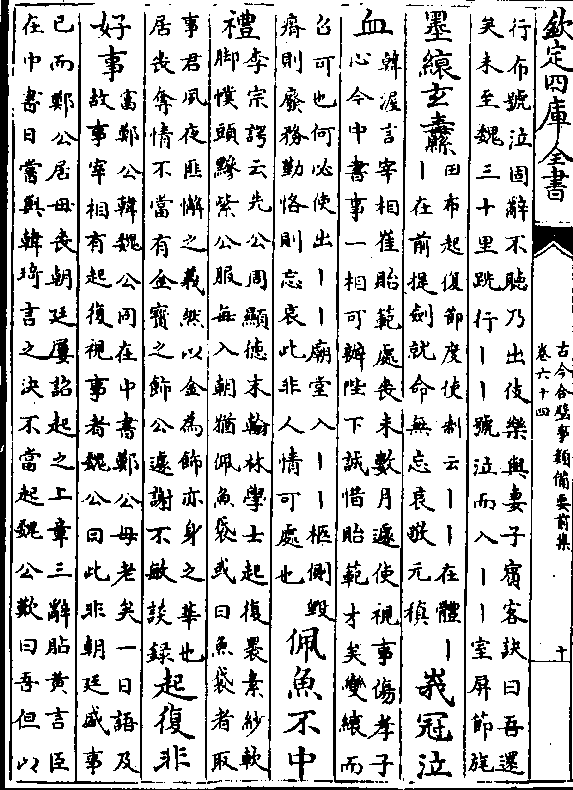 欽定四庫全書
古今合璧事類備要前集
卷六十四
十
行布號泣固辭不聽乃出伎樂與妻子賓客訣曰吾還
矣未至魏三十里跣行丨丨號泣而入丨丨室屏節旄
墨縗玄纛田布起復節度使制云丨丨在體丨
丨在前提劍就命無忘哀敬元稹
峩冠泣
血韓渥言宰相崔貽範處喪未數月遽使視事傷孝子
心今中書事一相可辦陛下誠惜貽範才矣變縗而
召可也何必使出丨丨廟堂入丨丨柩側毀
瘠則廢務勤恪則忘哀此非人情可處也
佩魚不中
禮李宗諤云先公周顯德末翰林學士起復裹素紗軟
脚幞頭黲紫公服每入朝猶佩魚袋或曰魚袋者取
事君夙夜匪懈之義然以金為飾亦身之華也
居喪奪情不當有金寳之飾公遽謝不敏談録
起復非
好事富鄭公韓魏公同在中書鄭公母老矣一日語及
故事宰相有起復視事者魏公曰此非朝廷盛事
已而鄭公居母喪朝廷屢詔起之上章三辭貼黄言臣
在中書日嘗與韓琦言之決不當起魏公歎曰吾但以